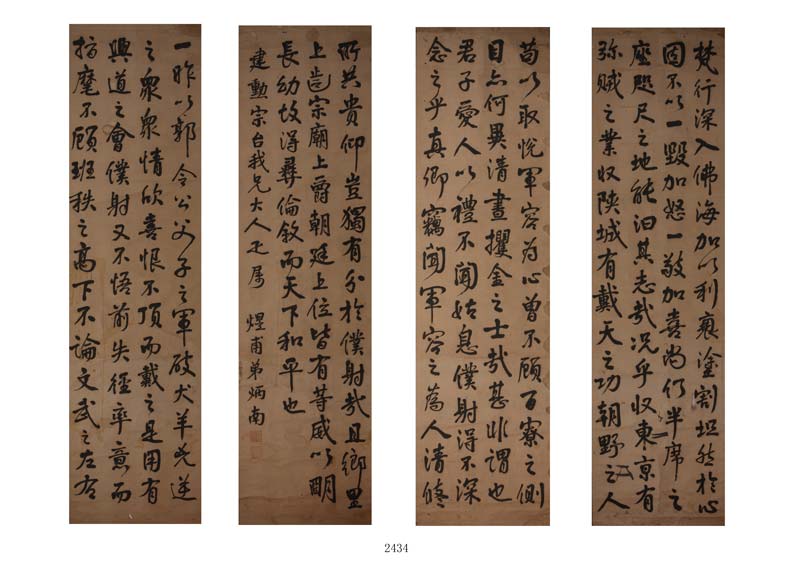 一昨以郭令公父子之軍破犬羊兇逆
之眾眾情欣喜恨不頂而戴之是用有
興道之會僕射又不悟前失徑率意而
指麾不顧班秩之高下不論文武之左右
苟以取悅軍容為心曾不顧百寮之側
目亦何異清晝攫金之士哉甚非謂也
君子愛人以禮不聞姑息僕射得不深
念之乎真卿竊聞軍容之為人清修
梵行深入佛海加以利衰塗割坦然於心
固不以一毀加怒一敬加喜尚何半席之
座咫尺之地能汩其志哉況乎收東京有
殄賊之業收陝城有戴天之功朝野之人
所共貴仰豈獨有分於僕射哉且鄉里
上齒宗廟上爵朝廷上位皆有等威以明
長幼故得彝倫敘而天下和平也
建勳宗台我兄大人正屬 煜甫弟炳南
2434